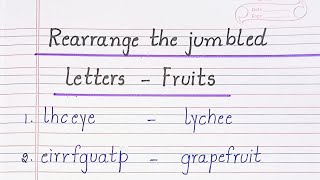 Rearrange the jumbled
letters - Fruits
1. lhceye - lychee
2. eirrfguatp - grapefruit